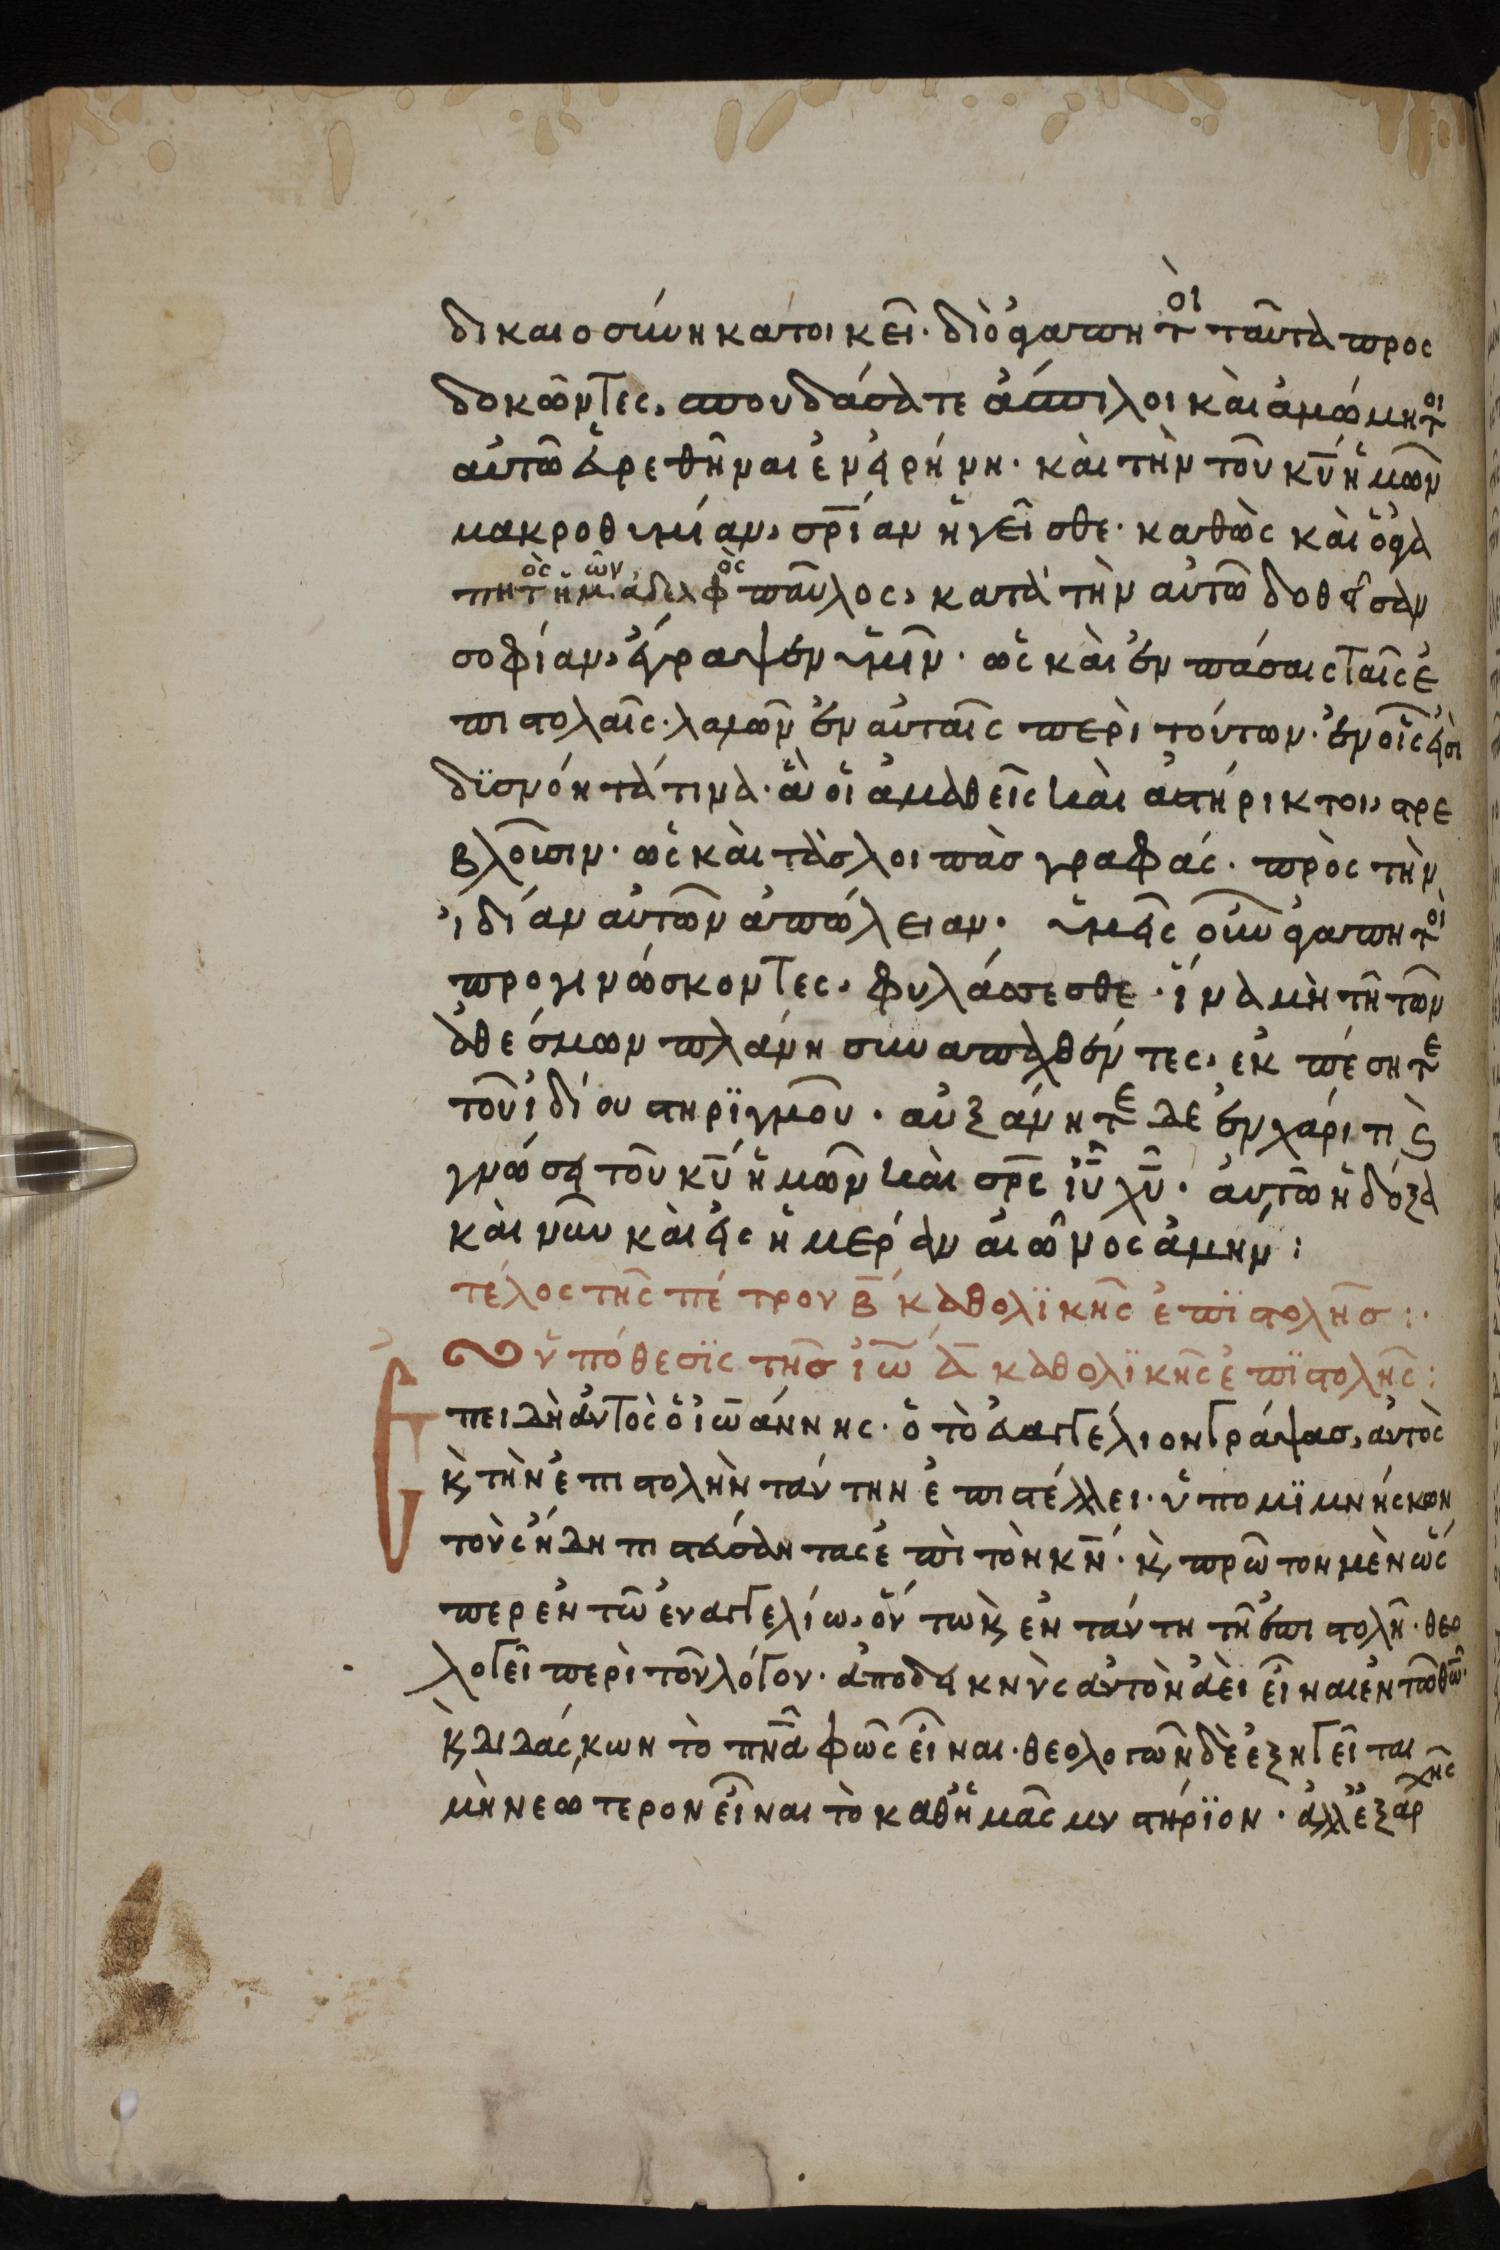 δικαιοσύνη κατοικεῖ· διὸ ἀγαπητοὶ ταῦτα προσ
δοκῶντες, σπουδάσατε ἄσπιλοι καὶ ἀμώμητοι
αὐτῶ εὑρεθῆναι ἐν εἰρήνη· καὶ τὴν τοῦ κ̅υ̅ ἡμῶν
μακροθυμίαν, σ̅ρ̅ίαν ἡγεῖσθε· καθὼς καὶ ὁ ἀγα
πητὸς ἡμῶν ἀδελφὸς παῦλος, κατὰ τὴν αὐτῶ δοθεῖσαν
σοφίαν, ἔγραψεν ὑμῖν· ὡς καὶ ἐν πάσαις ταῖς ἐ
πιστολαῖς· λαλῶν ἐν αὐταῖς περὶ τούτων· ἐν οἷς ἐστι
δϋσνόητά τινα· ἃ οἱ ἀμαθεῖς καὶ ἀστήρικτοι, στρε
βλοῦσιν· ὡς καὶ τὰς λοιπὰς γραφάς· πρὸς τὴν
ἰδίαν αὐτῶν ἀπώλειαν· ὑμεῖς οὖν ἀγαπητοὶ
προγινώσκοντες, φυλάσσεσθε· ἵνα μὴ τῆ τῶν
ἀθέσμων πλάνη συναπαχθέντες, ἐκπέσητε
τοῦ ἰδίου στηρϊγμοῦ· αὐξάνητε δὲ ἐν χάριτι ϗ
γνώσει τοῦ κ̅υ̅ ἡμῶν καὶ σ̅ρ̅ς ἰ̅υ̅ χ̅υ̅· αὐτῶ ἡ δόξα
καὶ νῦν καὶ εἰς ἡμέραν αἰῶνος ἀμήν:
τέλος τῆς πέτρου β̅ καθολϊκῆς ἐπϊστολῆς:·
ὑπόθεσϊς τῆς ἰω̅ α̅ καθολϊκῆς ἐπϊστολῆς:
Ἐπειδὴ αὐτὸς ὁ ἰωάννης· ὁ τὸ εὐαγγέλιον γράψας, αὐτὸς
ϗ τὴν ἐπιστολὴν ταύτην ἐπιστέλλει· ὑπομϊμνήσκων
τοὺς ἤδη πιστεύσαντας ἐπὶ τὸν κ̅ν̅· ϗ πρῶτον μὲν ὥς
περ ἐν τῶ εὐαγγελίω, οὕτω ϗ ἐν ταύτη τῆ ἐπιστολῆ· θεο
λογεῖ περὶ τοῦ λόγου· ἀποδεικνὺς αὐτὸν ἀεὶ εἶναι ἐν τῶ θ̅ω̅·
ϗ διδάσκων τὸ π̅ν̅α̅ φῶς εἶναι· θεολογῶν δὲ ἐξηγεῖται
μὴ νεώτερον εἶναι τὸ καθ' ἡμᾶς μυστήρϊον· ἀλλ' ἐξ ἀρχῆς